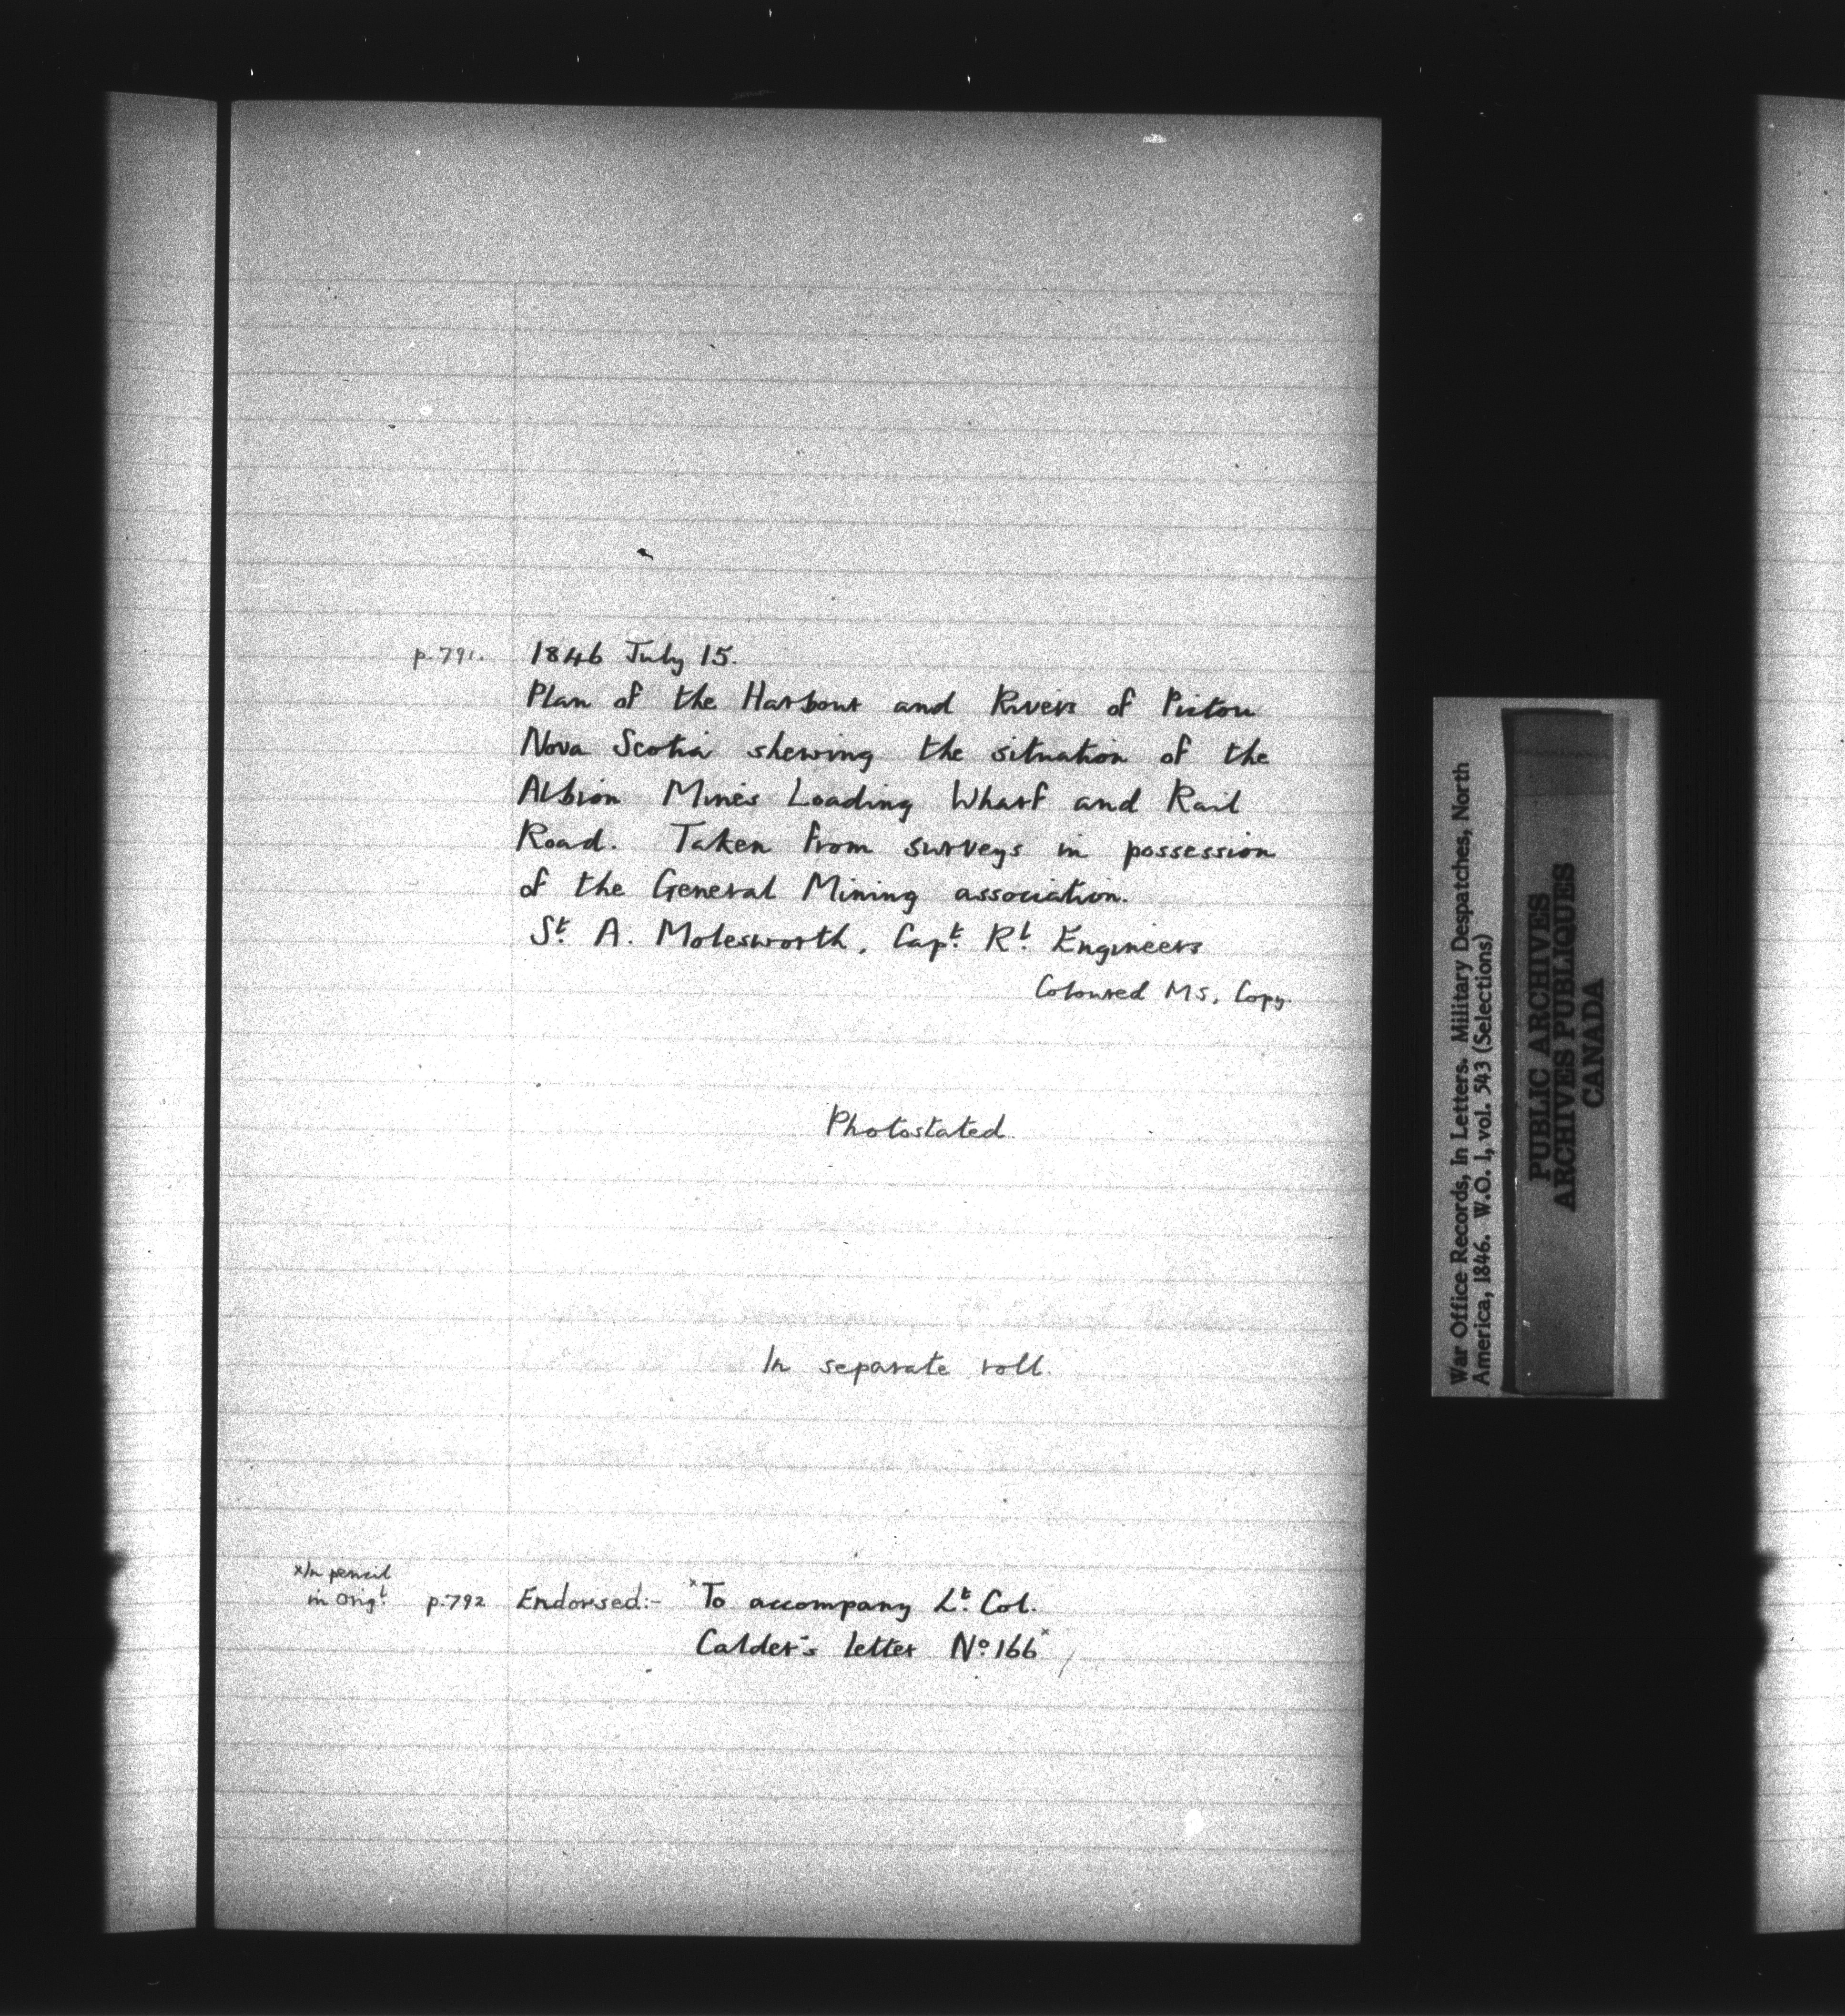 p. 791. 1846 July 15.
Plan of the Harbour and Rivers of Pictou
Nova Scotia shewing the situation of the
Albion Mines Loading Wharf and Rail
Road. Taken from surveys in possession
of the General Mining association.
St. A. Molesworth, Capt. Rl. Engineers
Coloured MS. Copy.
Photostated.
In separate roll.
x In pencil
in origl. p. 792 Endorsed:- x To accompany Lt. Col.
Calder's letter No. 166 x /
War Office Records, In Letters. Military Despatches, North
America, 1846. W.O. 1, vol. 543 (Selections)
PUBLIC ARCHIVES
ARCHIVES PUBLIQUES
CANADA